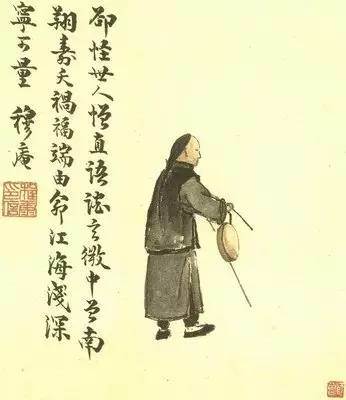 卻怪世人憎直語談言微中南
翔壽夭禍福端由命江海淺深
寧可量 穆庵